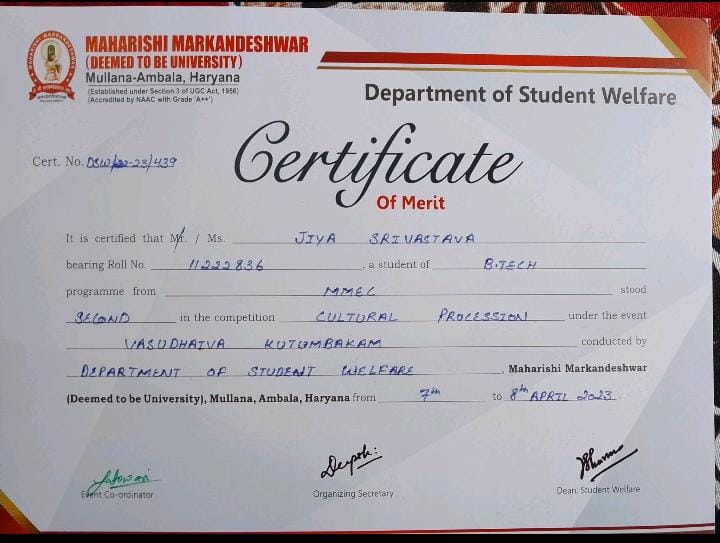 MAHARISHI MARKANDESHWAR
(DEEMED TO BE UNIVERSITY)
Mullana-Ambala, Haryana
(Established under Section 3 of UGC Act, 1956)
(Accredited by NAAC with Grade 'A++')
Department of Student Welfare
Cert. No. DSW/22-23/439
Certificate
Of Merit
It is certified that Mr. / Ms. JIYA SRIVASTAVA
bearing Roll No. 11222836, a student of B.TECH
programme from MMEC stood
SECOND in the competition CULTURAL PROCESSION under the event
VASUDHAIVA KUTUMBAKAM conducted by
DEPARTMENT OF STUDENT WELFARE, Maharishi Markandeshwar
(Deemed to be University), Mullana, Ambala, Haryana from 7th to 8th APRIL 2023
Event Co-ordinator
Organizing Secretary
Dean, Student Welfare